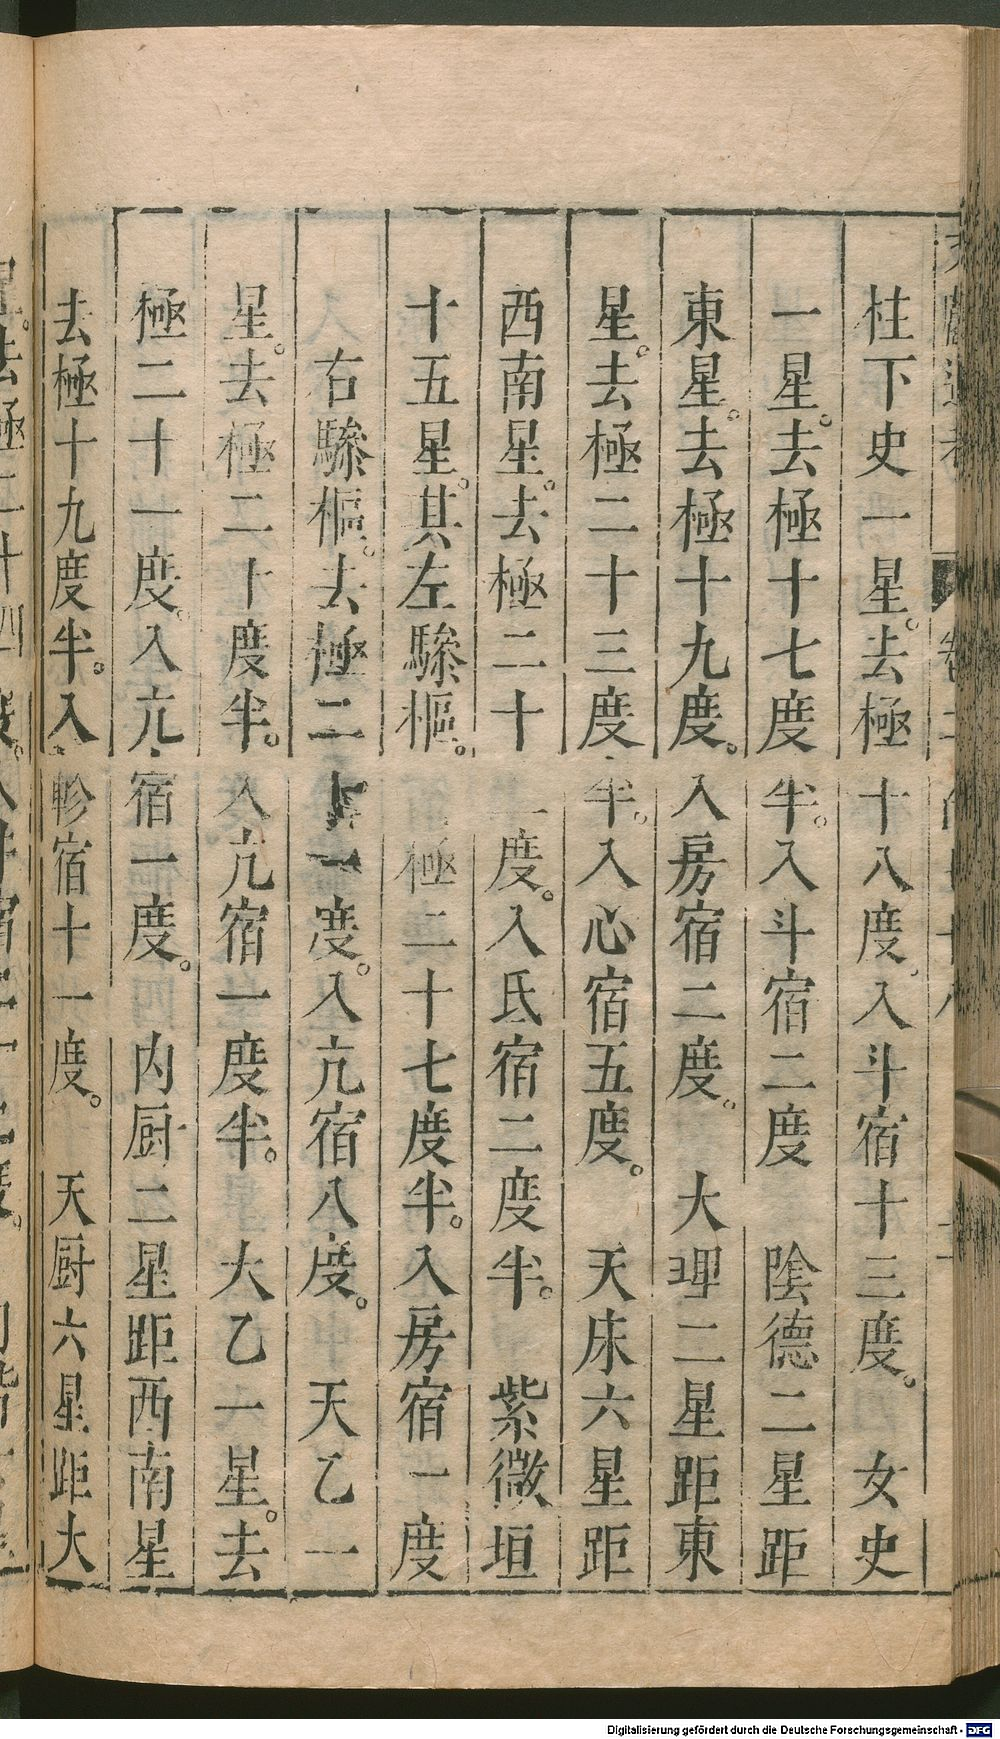 柱下史一星。去極十八度。入斗宿十三度。　女史
一星。去極十七度半。入斗宿二度　陰德二星距
東星。去極十九度。入房宿二度。　大理二星距東
星。去極二十三度半。入心宿五度。　天床六星距
西南星。去極二十一度。入氐宿二度半。　紫微垣
十五星。其左驂樞。去極二十七度半。入房宿一度
右驂樞。去極二十一度。入亢宿八度。　天乙一
星。去極二十度半。入亢宿一度半。　大乙一星。去
極二十一度。入亢宿一度。　内厨二星距西南星
去極十九度半。入軫宿十一度。　天厨六星距大
Digitalisierung gefördert durch die Deutsche Forschungsgemeinschaft - DFG